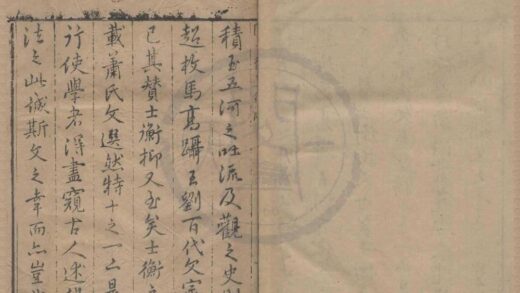 積玉五河之吐流及觀之史
超枚馬高躡王劉百代文宗
已其贊士衡抑又至矣士衡
載蕭氏文選然特十之一二是
行使學者得盡窺古人述
法之此誠斯文之幸而亦豈